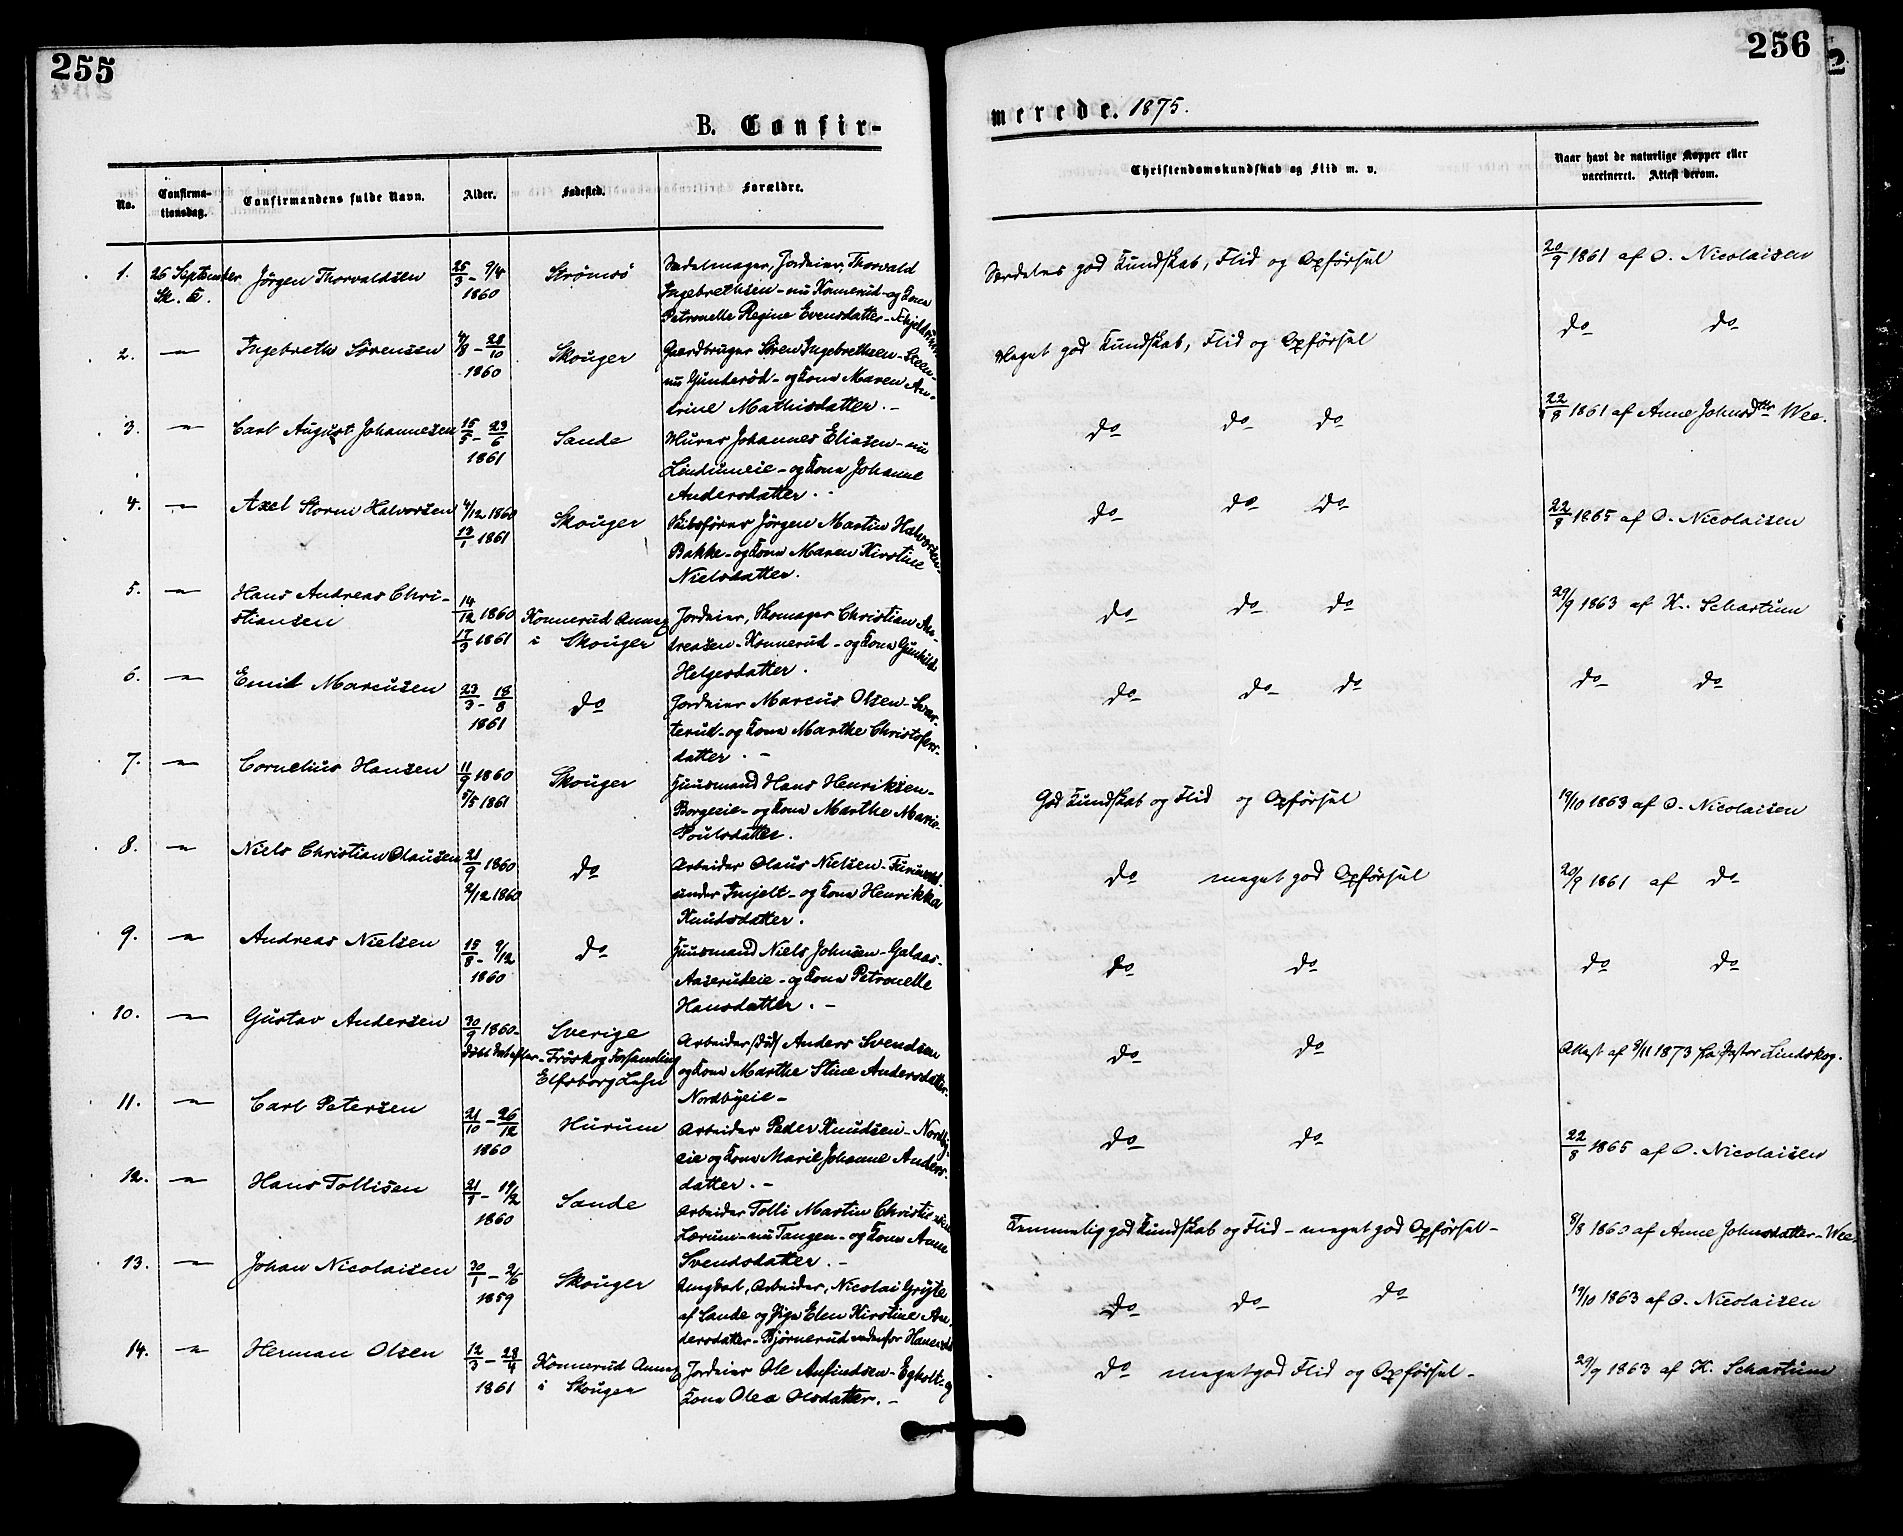 255
256
B. Confir-
merede. 1875.
No.
Confirma-
tionsdag.
Confirmandens fulde Navn.
Alder.
Fødested.
Forældre.
Christendomskundskab og Flid m. v.
Naar havt de naturlige Kopper eller
vaccineret. Attest derom.
1. 26 September Jörgen Thorvaldsen 25/3 - 9/4 Strömsö Sadelmager, Jordeier, Thorvald
Sk. K. 1860 Ingebrethsen - nu Konnerud - og Kone
Petronelle Regine Evensdatter
Særdeles god Kundskab, Flid og Opförsel 20/9 1861 af O. Nicolaisen
2. — Ingebreth Sörensen 4/8 - 28/10 Skouger Gaardbruger Sören Ingebrethsen - Steen-
1860 nu Gunderöd - og Kone Maren An-
drine Mathisdatter. -
Meget god Kundskab, Flid og Opförsel do do
3. — Carl August Johannesen 15/5 - 23/6 Sande Murer Johannes Eliasen - nu
1861 Lindumeie - og Kone Johanne
Andersdatter. -
do do do 22/8 1861 af Anne Johnsdtr Wee.
4. — Axel Storm Halvorsen 4/12 1860 Skouger Skibsförer Jörgen Martin Halvorsen
13/1 1861 Bakke - og Kone Maren Kirstine
Nielsdatter.
do do do 22/8 1865 af O. Nicolaisen
5. — Hans Andreas Chri- 14/12 1860 Konnerud Annex Jordeier, Skomager Christian An-
stiansen 17/3 1861 i Skouger dreasen - Konnerud - og Kone Gunhild
Helgesdatter.
do do do 29/9 1863 af K. Schartum
6. — Emil Marcusen 23/3 - 18/8 do Jordeier Marcus Olsen - Svar-
1861 terud - og Kone Marthe Christofers-
datter. -
do do do do do
7. — Cornelius Hansen 11/9 1860 Skouger Huusmand Hans Henriksen -
5/5 1861 Borgeeie - og Kone Marthe Marie
Poulsdatter.
God Kundskab og Flid og Opförsel 19/10 1863 af O. Nicolaisen
8. — Niels Christian Olausen 21/9 1860 do Arbeider Olaus Nielsen -
2/12 1860 under - og Kone Henrikka
Knudsdatter.
do meget god Opförsel 20/9 1861 af do
9. — Andreas Nielsen 15/8 - 9/12 do Huusmand Niels Johnsen - Galaas-
1860 Aaserudeie - og Kone Petronelle
Hansdatter. -
do do do do
10. — Gustav Andersen 30/9 1860 - Sverige Arbeider /död/ Anders Svendsen
döbt Fröskog Forsamling og Kone Marthe Stine Andersdatter
Elfsborg Lehn Nordbyeie -
do do Attest af 9/11 1873 fra Pastor Lindskog.
11. — Carl Petersen 21/10 - 26/12 Hurum Arbeider Peder Knudsen - Nordby-
1860 eie og Kone Marie Johanne Anders-
datter. -
do do 22/8 1865 af O. Nicolaisen
12. — Hans Tollisen 21/8 - 19/2 Sande Arbeider Tolli Martin Christiansen
1860 Lærum - nu Tangen - og Kone Anne
Svendsdatter. -
Temmelig god Kundskab og Flid - meget god Opförsel - 8/8 1860 af Anne Johnsdatter - Wee
13. — Johan Nicolaisen 30/1 - 2/6 Skouger Ungkarl, Arbeider, Nicolai Gryte
1859 af Sande og Pige Elen Kirstine An-
dersdatter - Björnerud
do do do 19/10 1863 af O. Nicolaisen
14. — Herman Olsen 12/3 - 28/4 Konnerud Annex Jordeier Ole Anfindsen - Egholt - og
1861 i Skouger Kone Olea Olsdatter. -
do meget god Flid og Opförsel - 29/9 1863 af K. Schartum